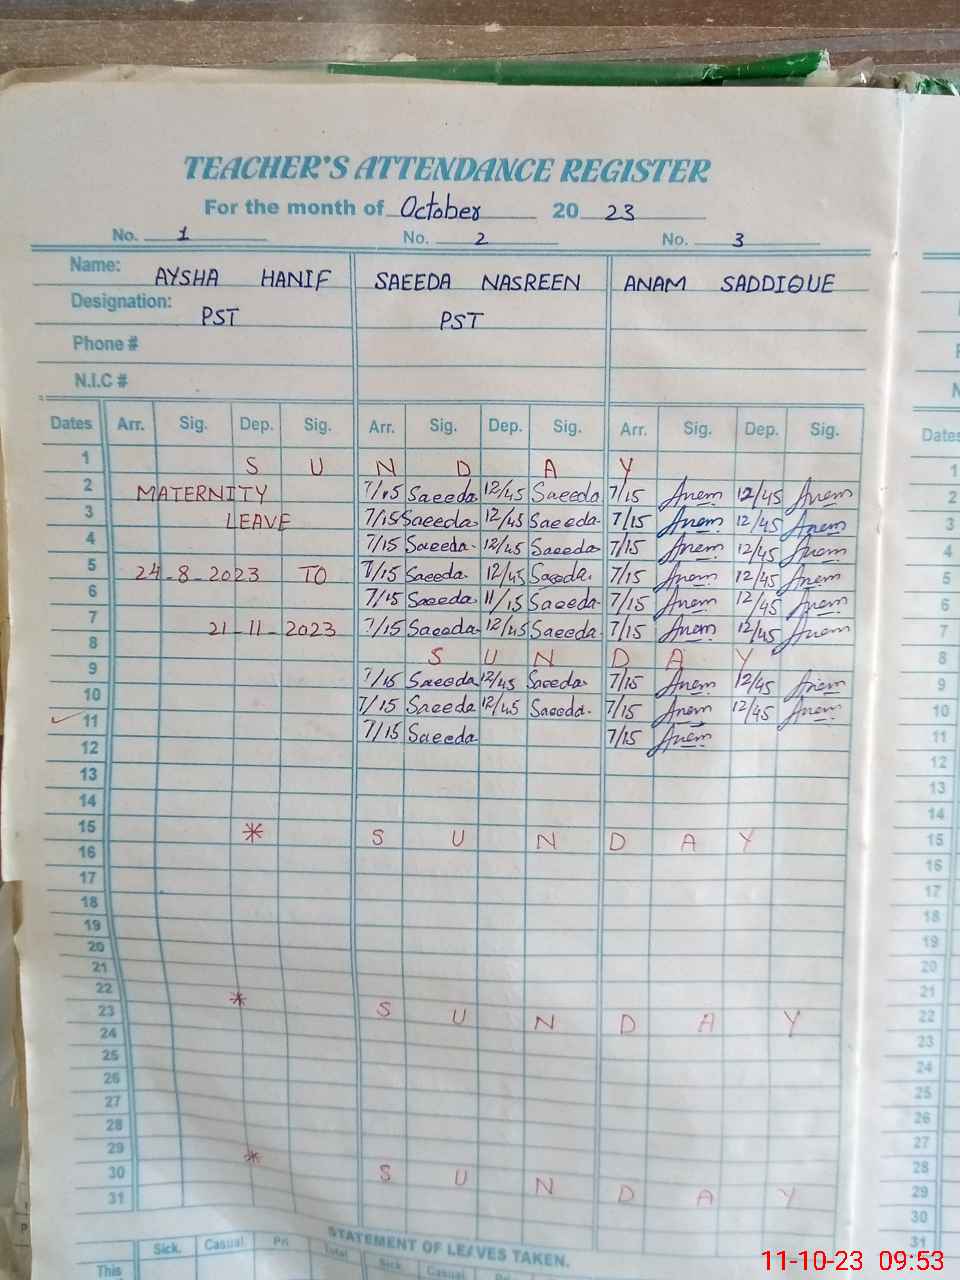 TEACHER'S ATTENDANCE REGISTER
For the month of October 20 23
No. 1 No. 2 No. 3
Name: AYSHA HANIF SAEEDA NASREEN ANAM SADDIQUE
Designation: PST PST
Phone #
N.I.C #
Dates Arr. Sig. Dep. Sig. Arr. Sig. Dep. Sig. Arr. Sig. Dep. Sig. Dates
1 S U N D A Y 1
2 MATERNITY 7/15 Saeeda 12/45 Saeeda 7/15 Anem 12/45 Anem 2
3 LEAVE 7/15 Saeeda 12/45 Saeeda 7/15 Anem 12/45 Anem 3
4 7/15 Saeeda 12/45 Saeeda 7/15 Anem 12/45 Anem 4
5 24-8-2023 TO 7/15 Saeeda 12/45 Saeeda 7/15 Anem 12/45 Anem 5
6 7/15 Saeeda 11/15 Saeeda 7/15 Anem 12/45 Anem 6
7 21-11-2023 7/15 Saeeda 12/45 Saeeda 7/15 Anem 12/45 Anem 7
8 S U N D A Y 8
9 7/15 Saeeda 12/45 Saeeda 7/15 Anem 12/45 Anem 9
10 7/15 Saeeda 12/45 Saeeda 7/15 Anem 12/45 Anem 10
11 7/15 Saeeda 7/15 Anem 11
12 12
13 13
14 14
15 * S U N D A Y 15
16 16
17 17
18 18
19 19
20 20
21 21
22 * S U N D A Y 22
23 23
24 24
25 25
26 26
27 27
28 28
29 * S U N D A Y 29
30 30
31 31
STATEMENT OF LEAVES TAKEN.
Sick. Casual. Pri Total Sick. Casual.
This
11-10-23 09:53